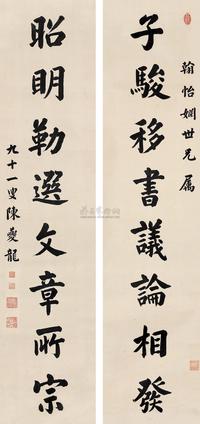 翰怡姻世兄属
子駿移書議論相發
昭明勒選文章所宗
九十一叟陳夔龍